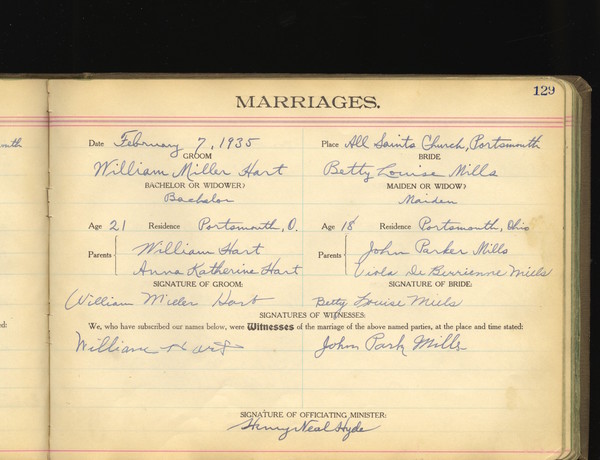 129
MARRIAGES.
Date February 7, 1935 Place All Saints Church, Portsmouth
GROOM BRIDE
William Miller Hart Betty Louise Mills
BACHELOR OR WIDOWER? MAIDEN OR WIDOW?
Bachelor Maiden
Age 21 Residence Portsmouth, O. Age 18 Residence Portsmouth, Ohio
Parents William Hart Parents John Parker Mills
Anna Katherine Hart Viola De Berrienne Mills
SIGNATURE OF GROOM: SIGNATURE OF BRIDE:
William Miller Hart Betty Louise Mills
SIGNATURES OF WITNESSES:
We, who have subscribed our names below, were Witnesses of the marriage of the above named parties, at the place and time stated:
William Hart John Park Mills
SIGNATURE OF OFFICIATING MINISTER:
Henry Neal Hyde